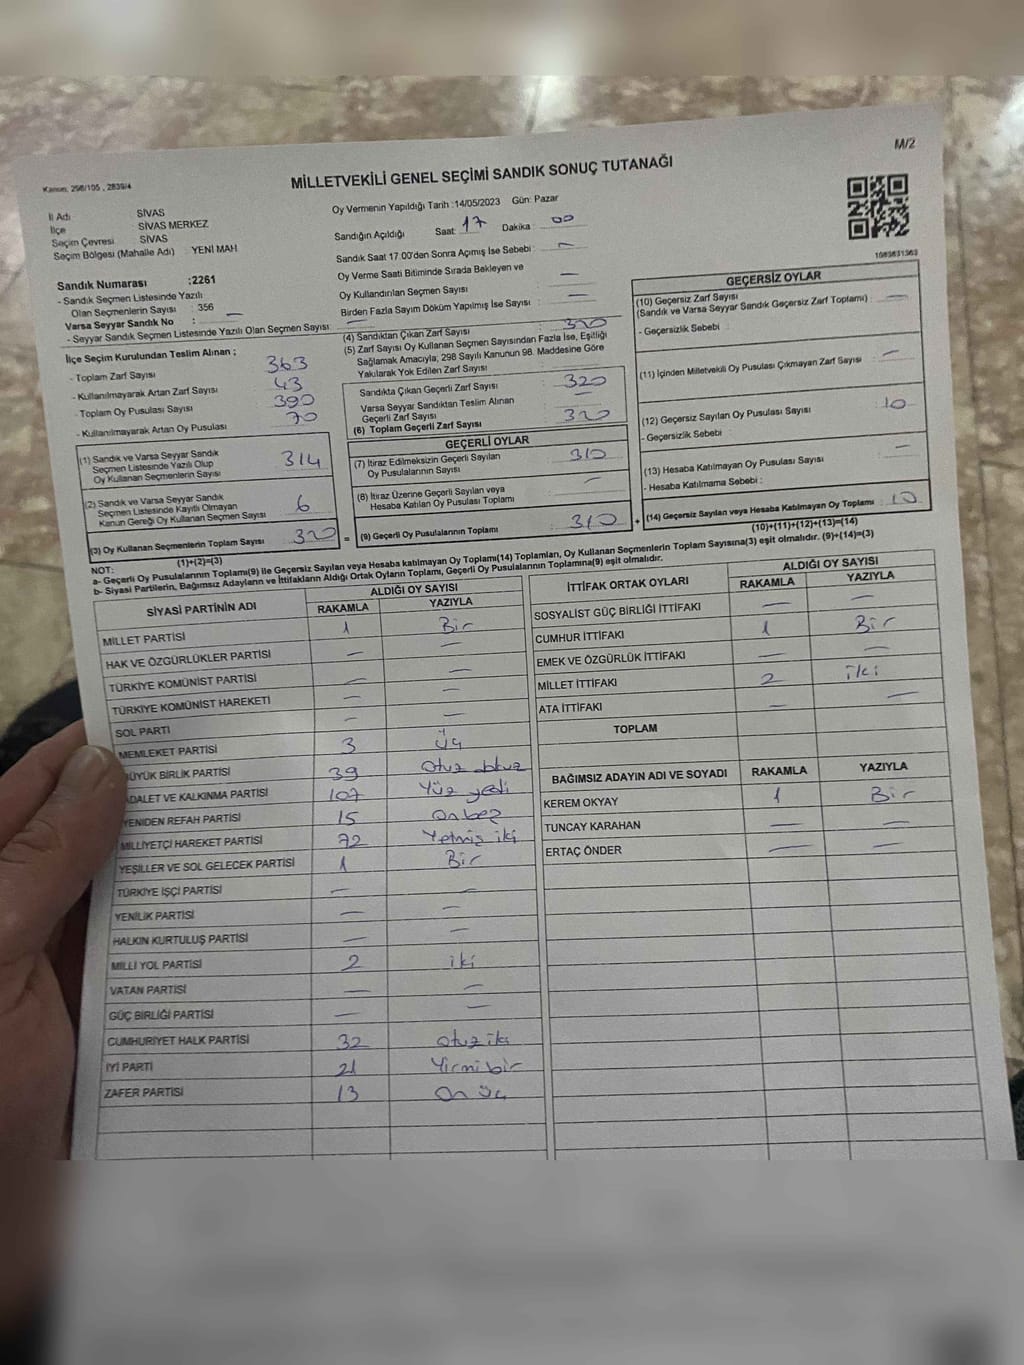 M/2
Kanun, 298/105 , 2839/4
MİLLETVEKİLİ GENEL SEÇİMİ SANDIK SONUÇ TUTANAĞI
İl Adı SİVAS
İlçe SİVAS MERKEZ
Seçim Çevresi SİVAS
Seçim Bölgesi (Mahalle Adı) YENİ MAH
Sandık Numarası :2261
- Sandık Seçmen Listesinde Yazılı
Olan Seçmenlerin Sayısı : 356
Varsa Seyyar Sandık No : —
- Seyyar Sandık Seçmen Listesinde Yazılı Olan Seçmen Sayısı : —
İlçe Seçim Kurulundan Teslim Alınan ;
- Toplam Zarf Sayısı 363
- Kullanılmayarak Artan Zarf Sayısı 43
- Toplam Oy Pusulası Sayısı 390
- Kullanılmayarak Artan Oy Pusulası 70
(1) Sandık ve Varsa Seyyar Sandık
Seçmen Listesinde Yazılı Olup
Oy Kullanan Seçmenlerin Sayısı 314
(2) Sandık ve Varsa Seyyar Sandık
Seçmen Listesinde Kayıtlı Olmayan
Kanun Gereği Oy Kullanan Seçmen Sayısı 6
(3) Oy Kullanan Seçmenlerin Toplam Sayısı 320
(1)+(2)=(3)
Oy Vermenin Yapıldığı Tarih :14/05/2023 Gün: Pazar
Sandığın Açıldığı Saat: 17 Dakika : 00
Sandık Saat 17.00'den Sonra Açımış İse Sebebi : —
Oy Verme Saati Bitiminde Sırada Bekleyen ve
Oy Kullandırılan Seçmen Sayısı : —
Birden Fazla Sayım Döküm Yapılmış İse Sayısı : —
(4) Sandıktan Çıkan Zarf Sayısı : 320
(5) Zarf Sayısı Oy Kullanan Seçmen Sayısından Fazla İse, Eşitliği
Sağlamak Amacıyla; 298 Sayılı Kanunun 98. Maddesine Göre
Yakılarak Yok Edilen Zarf Sayısı :
Sandıkta Çıkan Geçerli Zarf Sayısı : 320
Varsa Seyyar Sandıktan Teslim Alınan
Geçerli Zarf Sayısı : —
(6) Toplam Geçerli Zarf Sayısı : 320
GEÇERLİ OYLAR
(7) İtiraz Edilmeksizin Geçerli Sayılan
Oy Pusulalarının Sayısı : 310
(8) İtiraz Üzerine Geçerli Sayılan veya
Hesaba Katılan Oy Pusulası Toplamı : —
= (9) Geçerli Oy Pusulalarının Toplamı : 310 +
1083631563
GEÇERSİZ OYLAR
(10) Geçersiz Zarf Sayısı
(Sandık ve Varsa Seyyar Sandık Geçersiz Zarf Toplamı) : —
- Geçersizlik Sebebi :
(11) İçinden Milletvekili Oy Pusulası Çıkmayan Zarf Sayısı : —
(12) Geçersiz Sayılan Oy Pusulası Sayısı : 10
- Geçersizlik Sebebi :
(13) Hesaba Katılmayan Oy Pusulası Sayısı : —
- Hesaba Katılmama Sebebi :
(14) Geçersiz Sayılan veya Hesaba Katılmayan Oy Toplamı : 10
(10)+(11)+(12)+(13)=(14)
NOT:
a- Geçerli Oy Pusulalarının Toplamı(9) ile Geçersiz Sayılan veya Hesaba katılmayan Oy Toplamı(14) Toplamları, Oy Kullanan Seçmenlerin Toplam Sayısına(3) eşit olmalıdır. (9)+(14)=(3)
b- Siyasi Partilerin, Bağımsız Adayların ve İttifakların Aldığı Ortak Oyların Toplamı, Geçerli Oy Pusulalarının Toplamına(9) eşit olmalıdır.
SİYASİ PARTİNİN ADI ALDIĞI OY SAYISI
RAKAMLA YAZIYLA
MİLLET PARTİSİ 1 Bir
HAK VE ÖZGÜRLÜKLER PARTİSİ — —
TÜRKİYE KOMÜNİST PARTİSİ — —
TÜRKİYE KOMÜNİST HAREKETİ — —
SOL PARTİ — —
MEMLEKET PARTİSİ 3 üç
BÜYÜK BİRLİK PARTİSİ 39 Otuz dokuz
ADALET VE KALKINMA PARTİSİ 107 Yüz yedi
YENİDEN REFAH PARTİSİ 15 Onbeş
MİLLİYETÇİ HAREKET PARTİSİ 72 Yetmiş iki
YEŞİLLER VE SOL GELECEK PARTİSİ 1 Bir
TÜRKİYE İŞÇİ PARTİSİ — —
YENİLİK PARTİSİ — —
HALKIN KURTULUŞ PARTİSİ — —
MİLLİ YOL PARTİSİ 2 iki
VATAN PARTİSİ — —
GÜÇ BİRLİĞİ PARTİSİ — —
CUMHURİYET HALK PARTİSİ 32 Otuz iki
İYİ PARTİ 21 Yirmi bir
ZAFER PARTİSİ 13 On üç
İTTİFAK ORTAK OYLARI ALDIĞI OY SAYISI
RAKAMLA YAZIYLA
SOSYALİST GÜÇ BİRLİĞİ İTTİFAKI — —
CUMHUR İTTİFAKI 1 Bir
EMEK VE ÖZGÜRLÜK İTTİFAKI — —
MİLLET İTTİFAKI 2 iki
ATA İTTİFAKI — —
TOPLAM
BAĞIMSIZ ADAYIN ADI VE SOYADI RAKAMLA YAZIYLA
KEREM OKYAY 1 Bir
TUNCAY KARAHAN — —
ERTAÇ ÖNDER — —